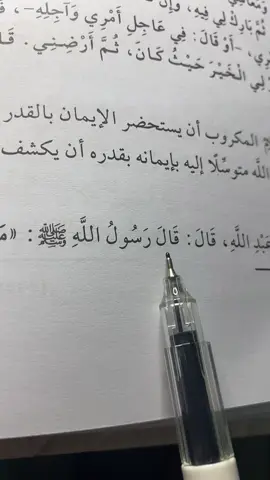 ثُمَّ بَارِكْ لِي فِيهِ، وَإِنْ
- أَوْ قَالَ: فِي عَاجِلِ أَمْرِي وَآجِلِهِ -،
لِي الْخَيْرَ حَيْثُ كَانَ، ثُمَّ أَرْضِنِي.
المكروب أن يستحضر الإيمان بالقدر
اللَّه متوسِّلًا إليه بإيمانه بقدره أن يكشف
عَبْدِ اللَّهِ، قَالَ: قَالَ رَسُولُ اللَّهِ ﷺ: «